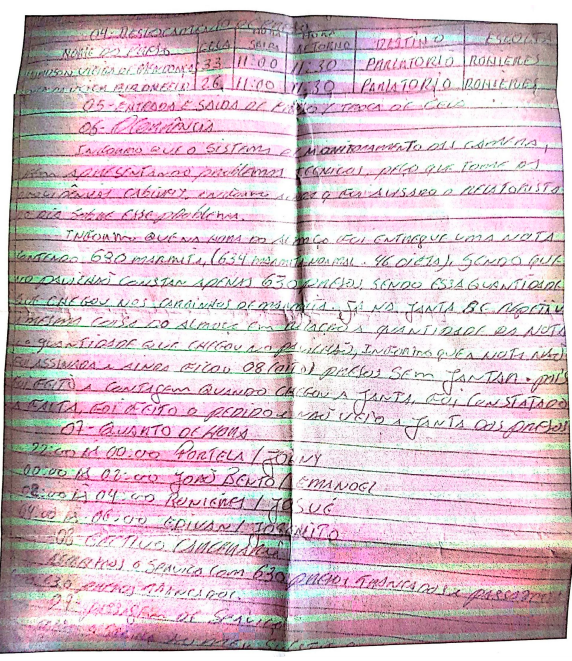 04- DESLOCAMENTO DE PRESO
NOME DO PRESO CELA HORA SAIDA HORA RETORNO DESTINO ESCOLTA
33 11:00 11:30 PARLATORIO RONIERES
26 11:00 11:30 PARLATORIO RONIERES
05- ENTRADA E SAIDA DE PRESO / TROCA DE CELA
06- OCORRÊNCIA
INFORMO QUE O SISTEMA DE MONITORAMENTO DAS CAMERA,
VEM APRESENTANDO PROBLEMAS TECNICOS, PEÇO QUE TOME AS
PROVIDÊNCIAS CABIVEIS, FOI AVISADO O RELATORISTA
DO DIA SOBRE ESSE PROBLEMA.
INFORMO QUE NA HORA DO ALMOÇO FOI ENTREGUE UMA NOTA
CONTENDO 680 MARMITA, (634 MARMITA NORMAL, 46 DIETA), SENDO QUE
NO PAVILHÃO CONSTAN APENAS 630 PRESOS, SENDO ESSA QUANTIDADE
QUE CHEGOU NOS CARRINHOS DE MARMITA. JÁ NA JANTA SE REPETIU
MESMA COISA DO ALMOÇO EM RELAÇÃO A QUANTIDADE DA NOTA
QUANTIDADE QUE CHEGOU NO PAVILHÃO), INFORMO QUE A NOTA NÃO
FOI ASSINADA E AINDA FICOU 08 (OITO) PRESOS SEM JANTAR. POIS
FOI FEITO A CONTAGEM QUANDO CHEGOU A JANTA, FOI CONSTATADO
A FALTA, FOI FEITO O PEDIDO E NÃO VEIO A JANTA DOS PRESOS
07- QUARTO DE HORA
22:00 ÀS 00:00 PORTELA / JOHNY
00:00 ÀS 02:00 JOÃO BENTO / EMANOEL
02:00 ÀS 04:00 RONIERES / JOSUÉ
04:00 ÀS 06:00 EDIVAN /
08- EFETIVO CARCERÁRIO
O SERVIÇO COM 630 PRESOS TRANCADOS E PASSAMOS
630 PRESOS TRANCADOS.
09- PASSAGEM DE SERVIÇO